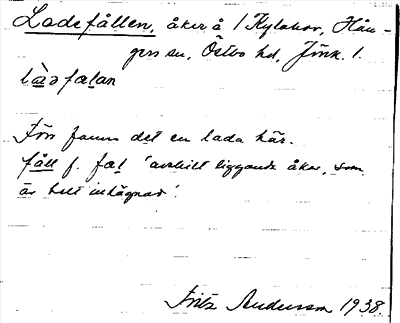 Ladefållen, åker å 1 Kylakov, Hån-
gers sn, Östbo hd, Jönk. l.
làdəfalan
Förr fanns det en lada här.
fåll f. fal 'avskilt liggande åker, som
är helt inhägnad'.
Fritz Andersson 1938.